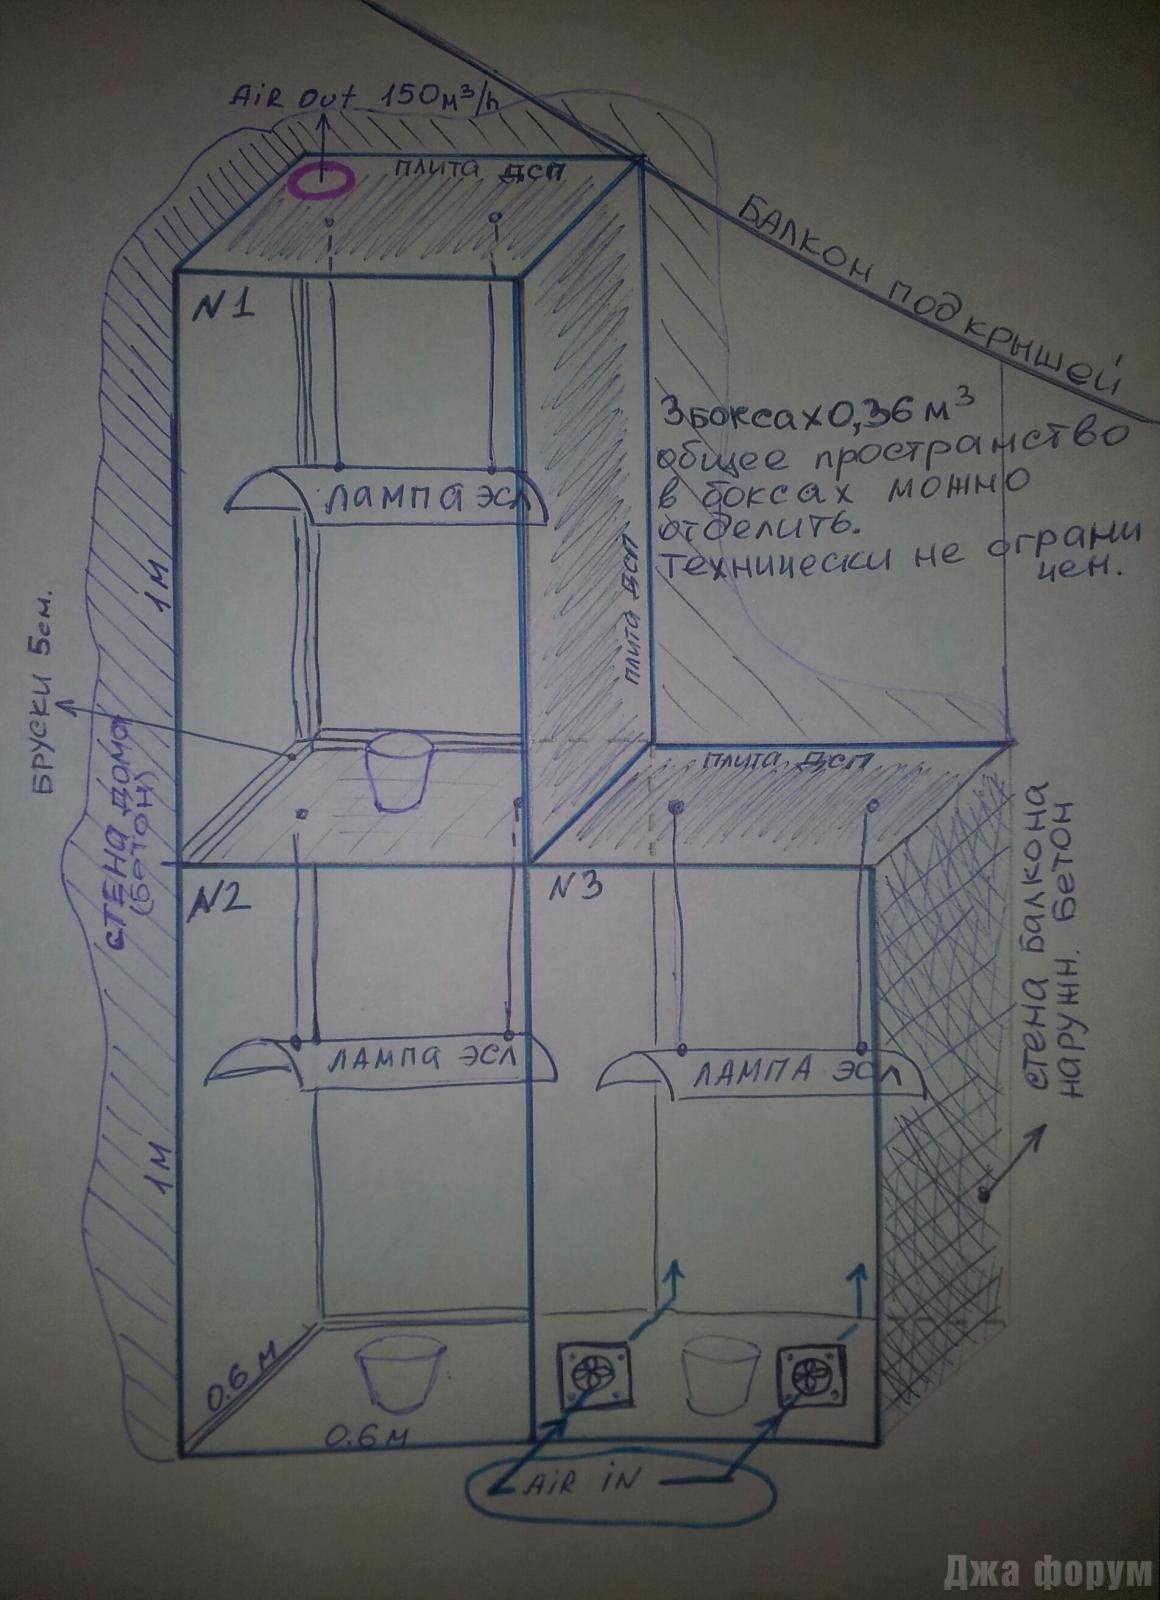 AiR Out 150м³/h
плита ДСП
БАЛКОН ПОД КРЫШЕЙ
N1
3 боксах0,36 м³
общее пространство
в боксах можно
отделить.
Технически не ограни
чен.
ЛАМПА ЭСЛ
1М
плита ДСП
БРУСКИ 5см.
СТЕНА ДОМА
(БЕТОН)
плита ДСП
N2
N3
СТЕНА БАЛКОНА
НАРУЖН. БЕТОН
ЛАМПА ЭСЛ
ЛАМПА ЭСЛ
1М
0.6 М
0.6 М
AiR iN
Джа форум